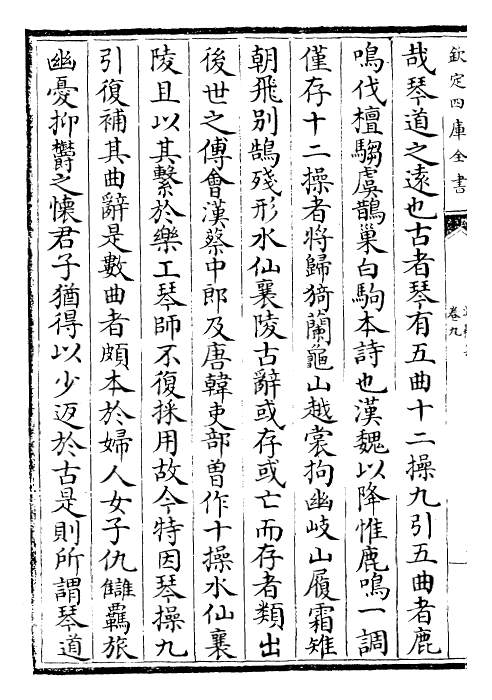 欽定四庫全書
卷九
哉琴道之遠也古者琴有五曲十二操九引五曲者鹿
鳴伐檀騶虞鵲巢白駒本詩也漢魏以降惟鹿鳴一調
僅存十二操者將歸猗蘭龜山越裳拘幽岐山履霜雉
朝飛别鵠殘形水仙襄陵古辭或存或亡而存者類出
後世之傅會漢蔡中郎及唐韓吏部曽作十操水仙襄
陵且以其繫於樂工琴師不復採用故今特因琴操九
引復補其曲辭是數曲者頗本於婦人女子仇讎羈旅
幽憂抑欝之懐君子猶得以少返於古是則所謂琴道